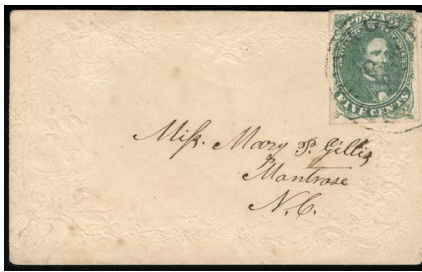 FIVE CENTS
Miſs. Mary P. Gillis
Montrose
N.C.